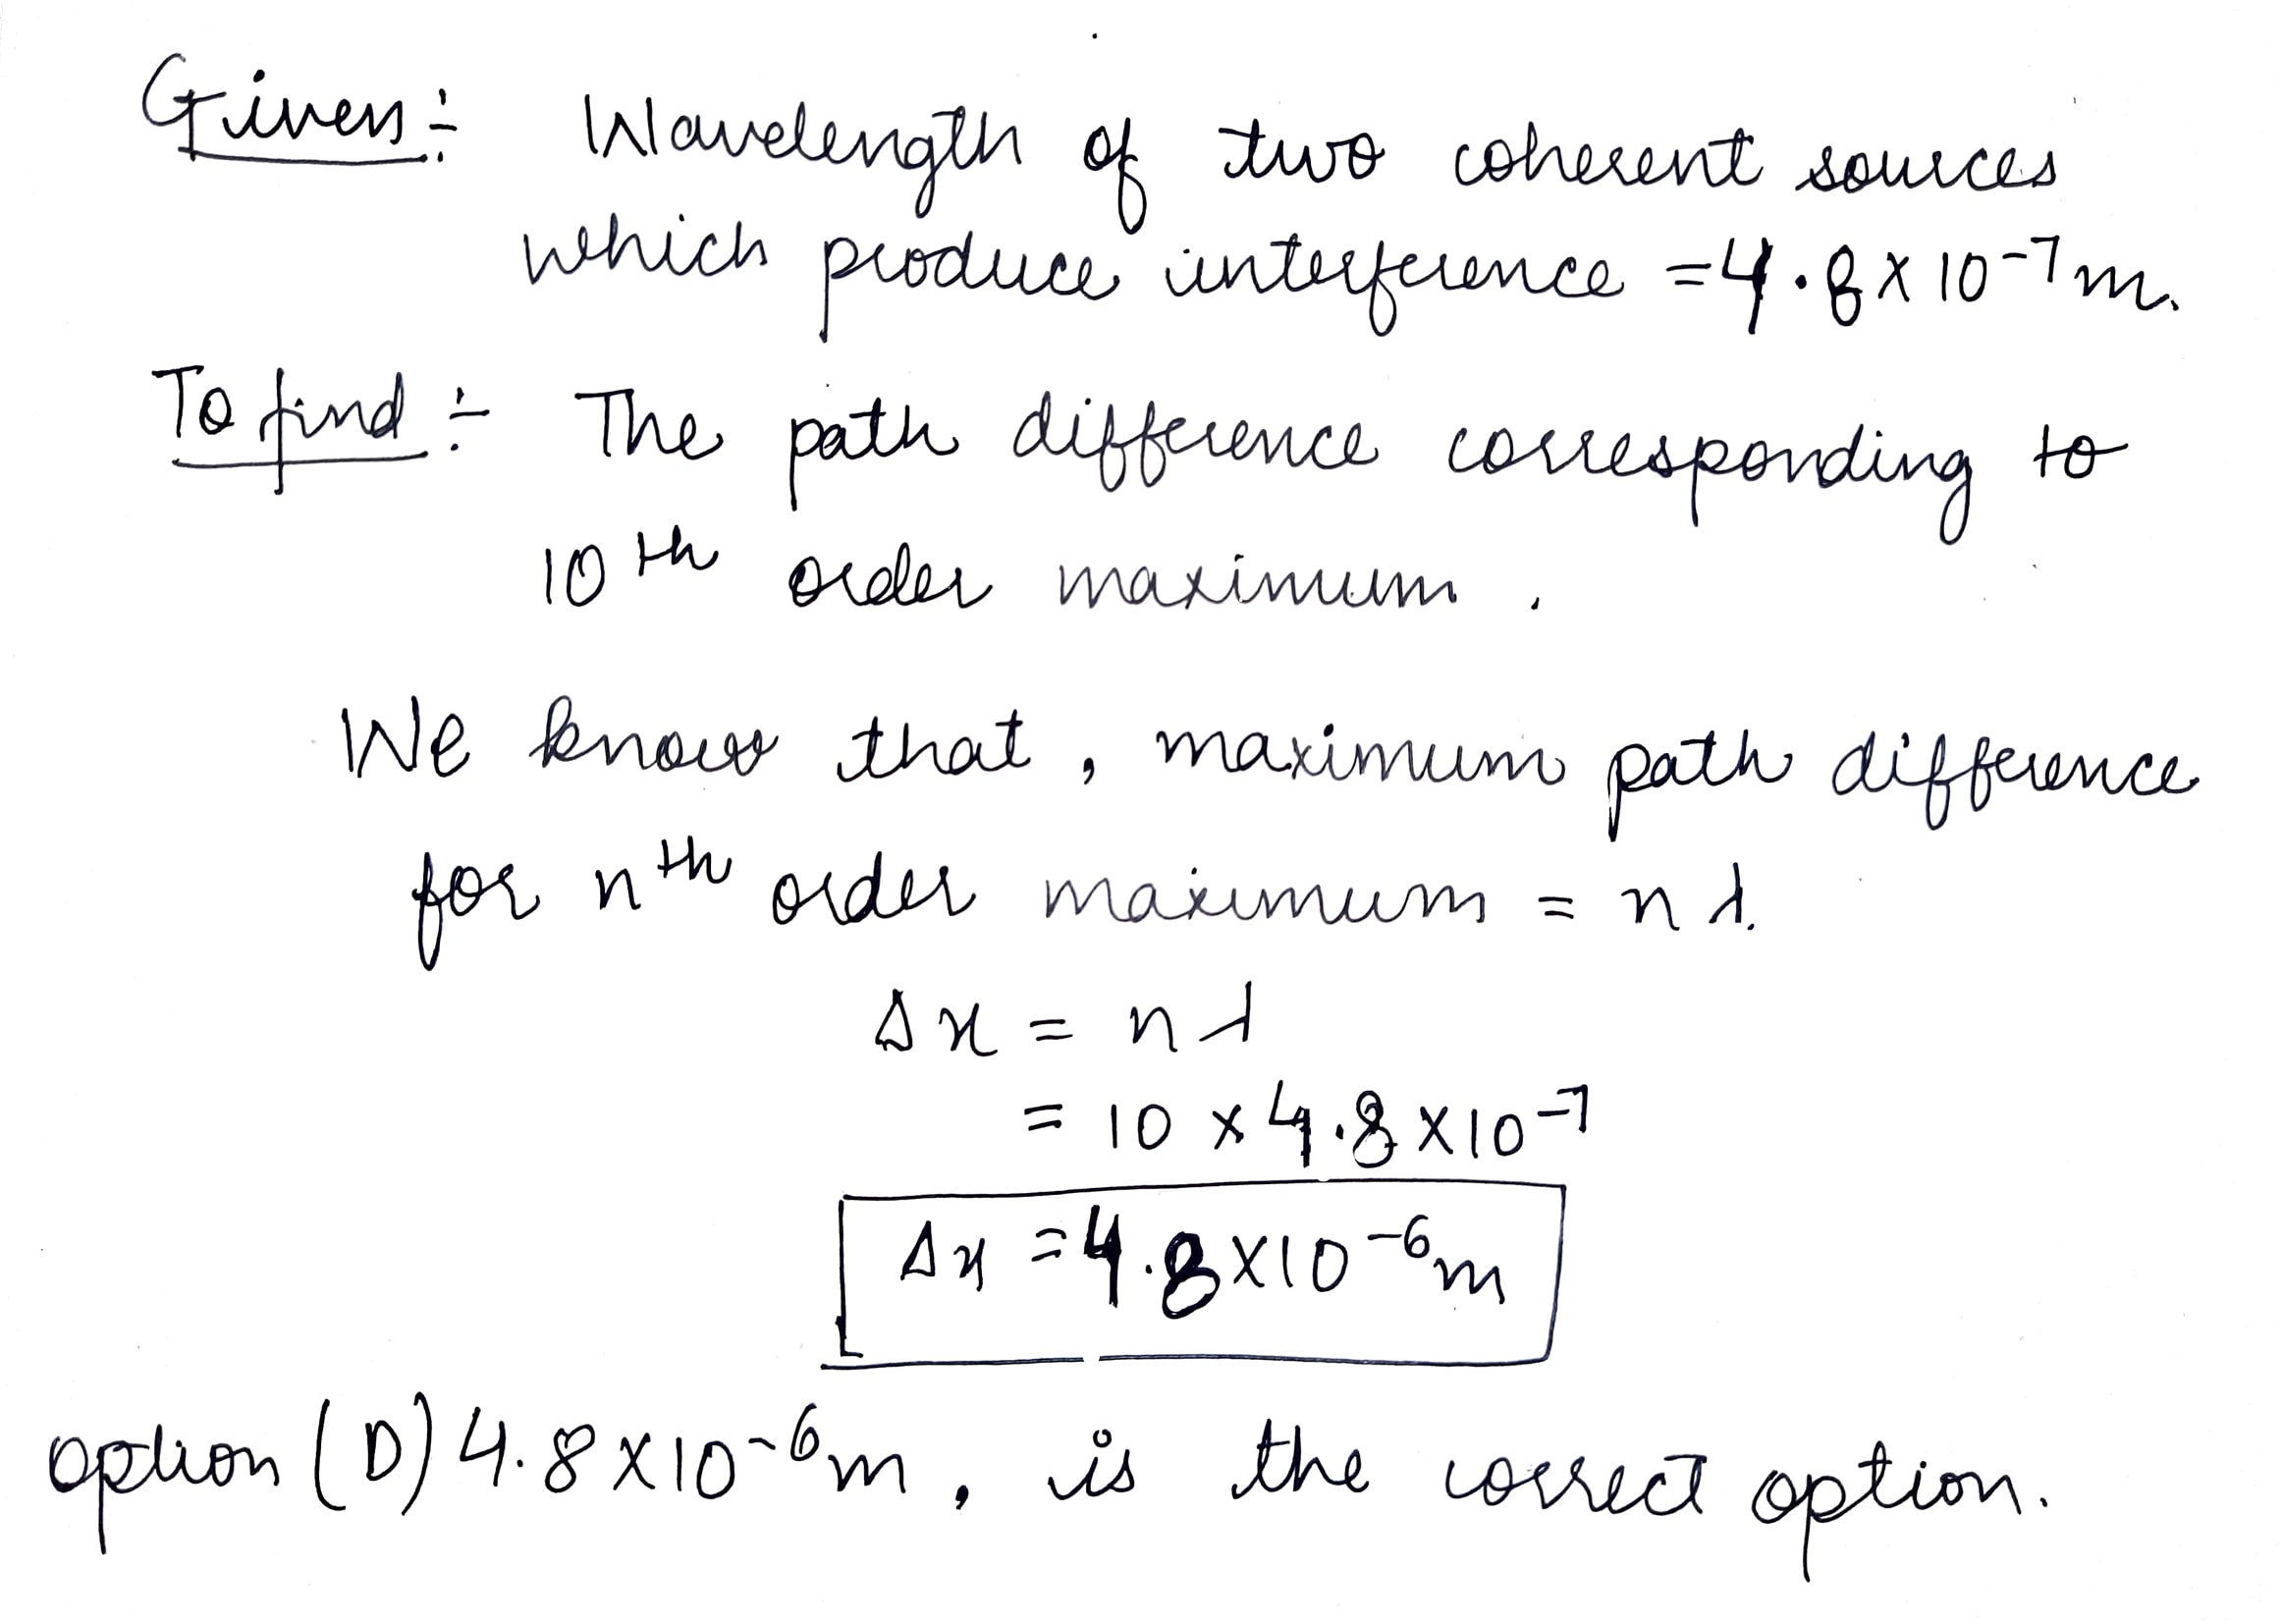 Given:- Wavelength of two coherent sources
which produce interference = 4.8 × 10⁻⁷ m.
To find:- The path difference corresponding to
10ᵗʰ order maximum.
We know that, maximum path difference
for nᵗʰ order maximum = nλ.
Δx = nλ
= 10 × 4.8 × 10⁻⁷
Δx = 4.8 × 10⁻⁶ m
option (D) 4.8 × 10⁻⁶ m, is the correct option.